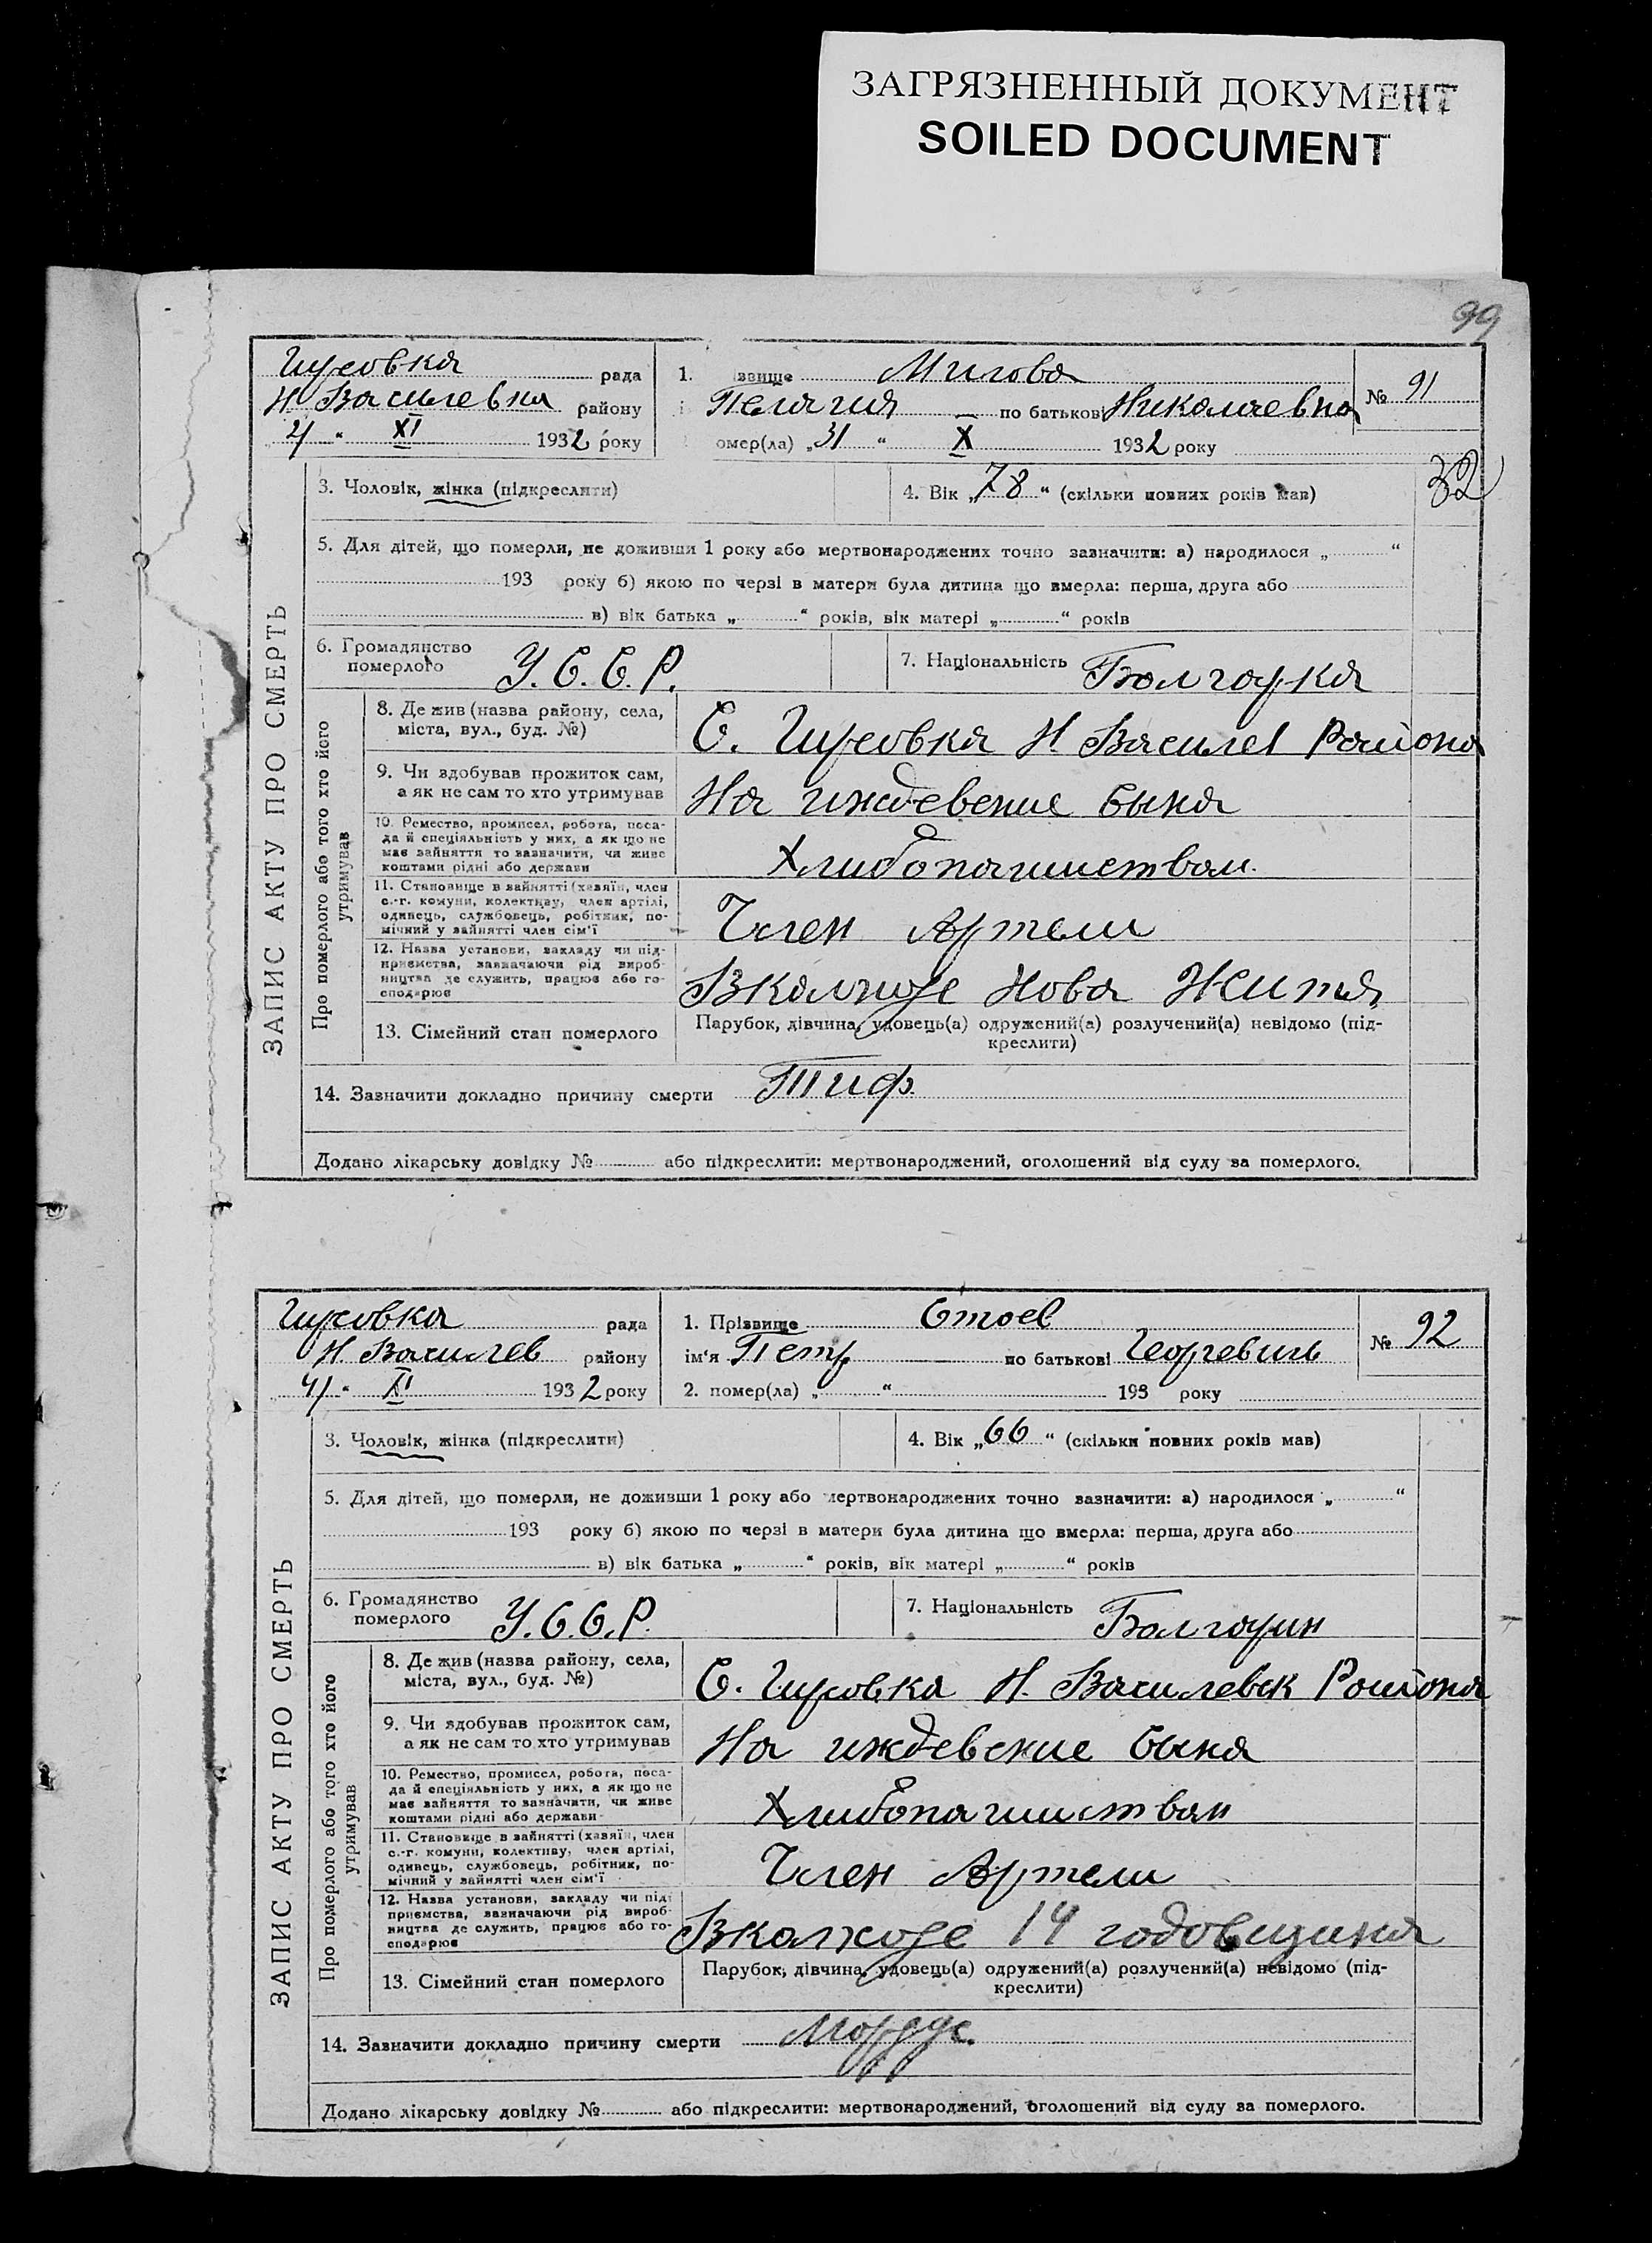 ЗАГРЯЗНЕННЫЙ ДОКУМЕНТ
SOILED DOCUMENT
99
Гирсовка рада
Н Василевка району
„4“ XI 1932 року
1. ізвище Мигова
Пелагия по батькові Николаевна
омер(ла) „31“ X 1932 року
№ 91
32
ЗАПИС АКТУ ПРО СМЕРТЬ
3. Чоловік, жінка (підкреслити)
4. Вік „78“ (скільки повних років мав)
5. Для дітей, що померли, не доживши 1 року або мертвонароджених точно зазначити: а) народилося „ “
193 року б) якою по черзі в матери була дитина що вмерла: перша, друга або
в) вік батька „ “ років, вік матері „ “ років
6. Громадянство
померлого У.С.С.Р.
7. Національність Болгарка
Про померлого або того хто його
утримував
8. Де жив (назва району, села,
міста, вул., буд. №)
С. Гирсовка Н Василев Района
9. Чи здобував прожиток сам,
а як не сам то хто утримував
На иждевение сына
10. Ремество, промисел, робота, поса-
да й спеціяльність у них, а як що не
має зайняття то зазначити, чи живе
коштами рідні або держави
Хлибопашиством
11. Становище в зайнятті (хазяїн, член
с.-г. комуни, колективу, член артілі,
одинець, службовець, робітник, по-
мічний у зайнятті член сім'ї
Член Артели
12. Назва установи, закладу чи під-
приємства, зазначаючи рід вироб-
ництва де служить, працює або го-
сподарює
Вколхозе Нова Житя
13. Сімейний стан померлого
Парубок, дівчина, удовець(а) одружений(а) розлучений(а) невідомо (під-
креслити)
14. Зазначити докладно причину смерти Тиф.
Додано лікарську довідку № або підкреслити: мертвонароджений, оголошений від суду за померлого.
Гирсовка рада
Н. Василев району
„4“ XI 1932 року
1. Прізвище Стоев
ім'я Петр по батькові Георгевичь
2. помер(ла) „ “ 193 року
№ 92
ЗАПИС АКТУ ПРО СМЕРТЬ
3. Чоловік, жінка (підкреслити)
4. Вік „66“ (скільки повних років мав)
5. Для дітей, що померли, не доживши 1 року або мертвонароджених точно зазначити: а) народилося „ “
193 року б) якою по черзі в матери була дитина що вмерла: перша, друга або
в) вік батька „ “ років, вік матері „ “ років
6. Громадянство
померлого У.С.С.Р.
7. Національність Болгарин
Про померлого або того хто його
утримував
8. Де жив (назва району, села,
міста, вул., буд. №)
С. Гирсовка Н. Василевск Района
9. Чи здобував прожиток сам,
а як не сам то хто утримував
На иждевение сына
10. Ремество, промисел, робота, поса-
да й спеціяльність у них, а як що не
має зайняття то зазначити, чи живе
коштами рідні або держави
Хлибопашиством
11. Становище в зайнятті (хазяїн, член
с.-г. комуни, колективу, член артілі,
одинець, службовець, робітник, по-
мічний у зайнятті член сім'ї
Член Артели
12. Назва установи, закладу чи під-
приємства, зазначаючи рід вироб-
ництва де служить, працює або го-
сподарює
Вколхозе 14 годовщина
13. Сімейний стан померлого
Парубок, дівчина, удовець(а) одружений(а) розлучений(а) невідомо (під-
креслити)
14. Зазначити докладно причину смерти
Додано лікарську довідку № або підкреслити: мертвонароджений, оголошений від суду за померлого.